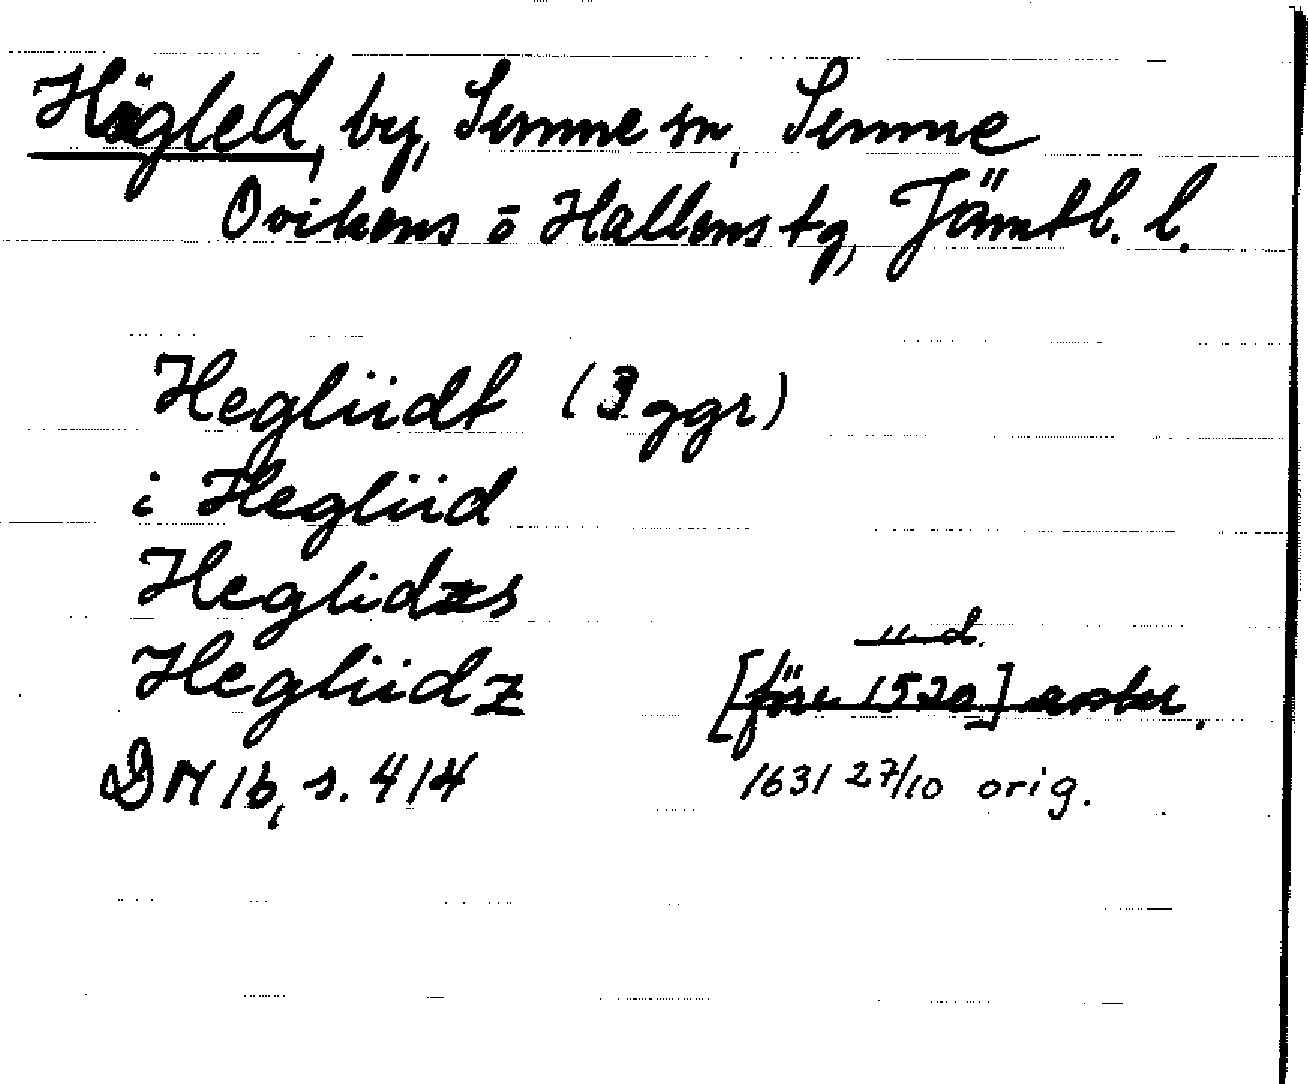 Högled, by, Sunne sn, Sunne
Ovikens o Hallens tg, Jämtl. l.
Hegliidt (3 ggr)
i Hegliid
Heglidzs
Hegliidz
u. d.
[före 1520] avskr.
DN 16, s. 414
1631 27/10 orig.